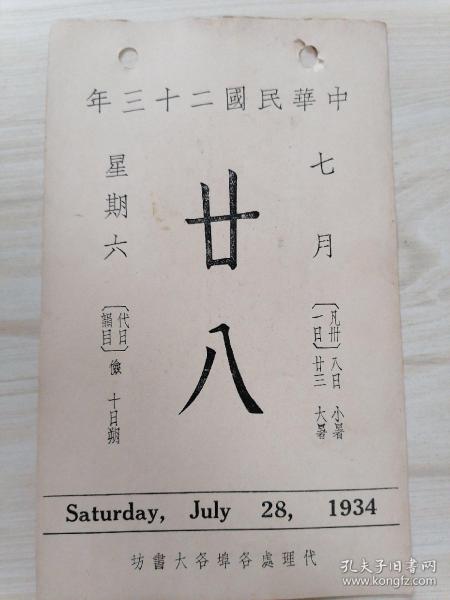 中華民國二十三年
七月
廿八
星期六
〔凡卅一日〕
八日 小暑
廿三 大暑
〔代日韻目〕
儉 十日朔
Saturday, July 28, 1934
代理處各埠各大書坊
孔夫子旧书网
www.kongfz.com